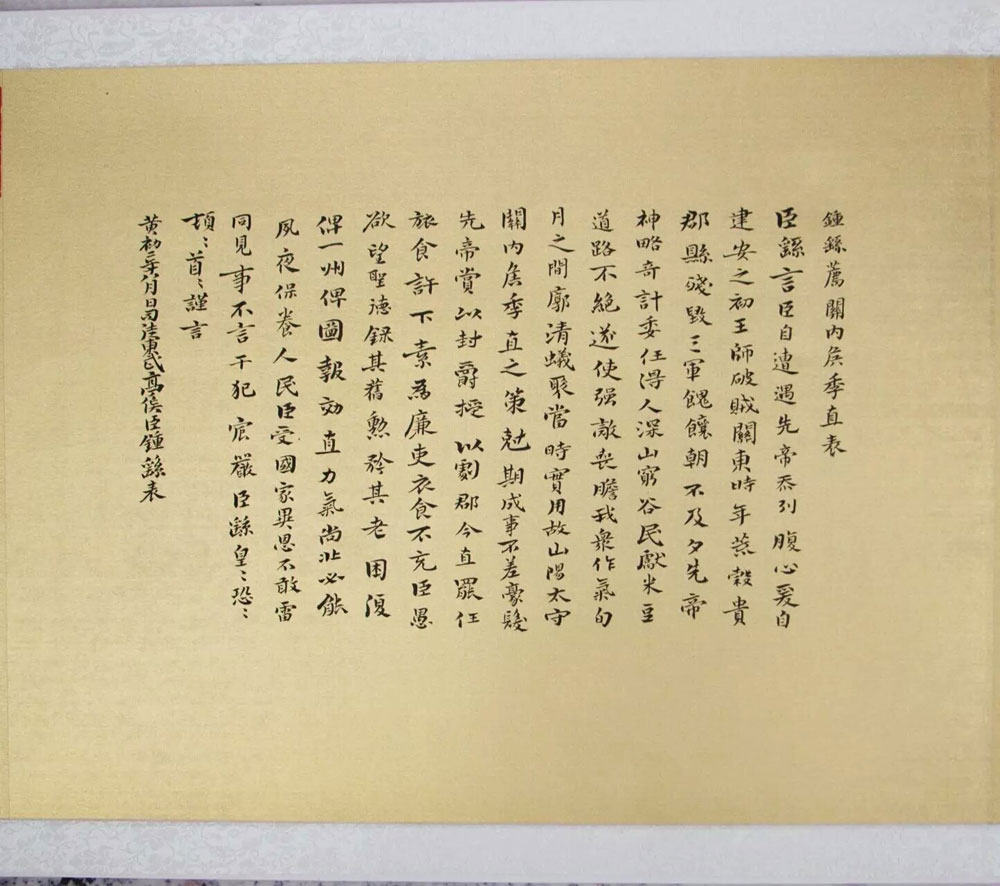 鍾繇薦關內侯季直表
臣繇言臣自遭遇先帝忝列腹心爰自
建安之初王師破賊關東時年荒穀貴
郡縣殘毀三軍餽饟朝不及夕先帝
神略奇計委任得人深山窮谷民獻米豆
道路不絕遂使强敵喪膽我衆作氣旬
月之間廓清蟻聚當時實用故山陽太守
關內侯季直之策尅期成事不差豪髮
先帝賞以封爵授以劇郡今直罷任
旅食許下素為廉吏衣食不充臣愚
欲望聖德錄其舊勲矜其老困復
俾一州俾圖報効直力氣尚壯必能
夙夜保養人民臣受國家異恩不敢雷
同見事不言干犯宸嚴臣繇皇〻恐〻
頓〻首〻謹言
黃初二年八月日司徒東武亭侯臣鍾繇表